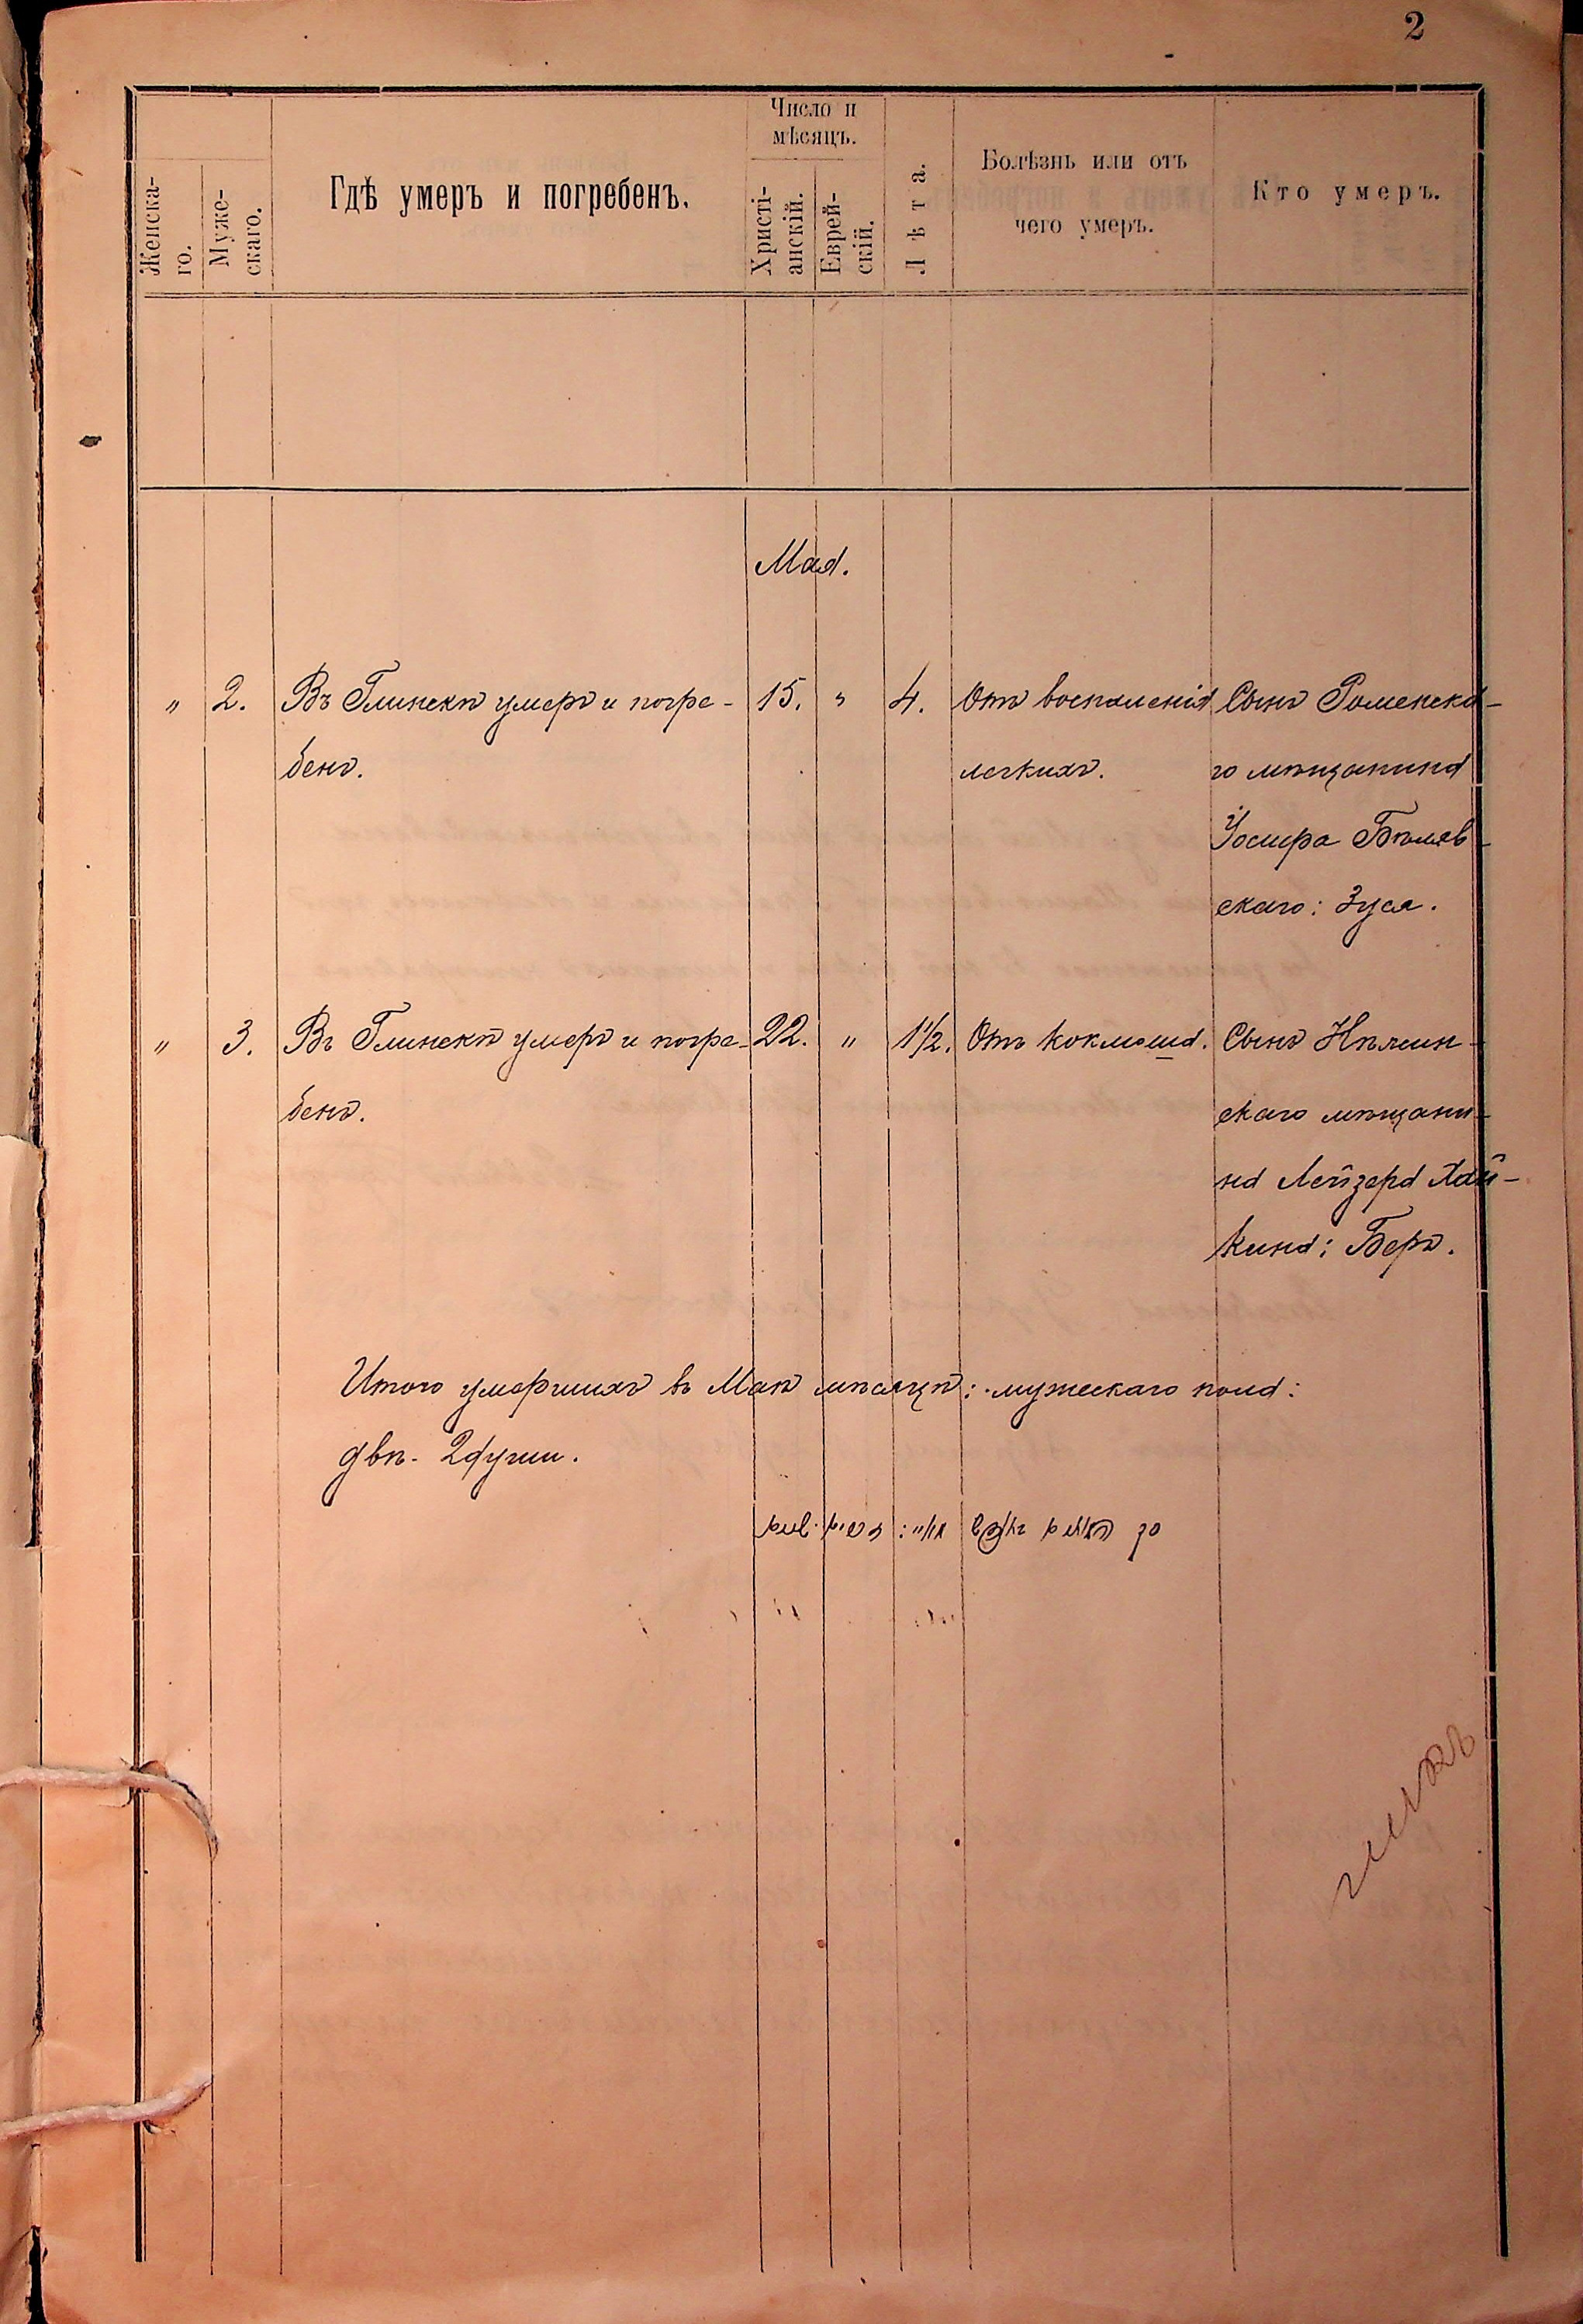 2
Женска-
го.
Муже-
скаго.
Гдѣ умеръ и погребенъ.
Число и
мѣсяцъ.
Христі-
анскій.
Еврей-
скій.
Лѣта.
Болѣзнь или отъ
чего умеръ.
Кто умеръ.
Мая.
" 2. Въ Глинскѣ умеръ и погре- 15. " 4. Отъ воспаленія Сынъ Роменска-
бенъ. легкихъ. го мѣщанина
Іосифа Бѣляв-
скаго: Зуся.
" 3. Въ Глинскѣ умеръ и погре- 22. " 1½. Отъ коклюша. Сынъ Нѣжин-
бенъ. скаго мѣщани-
на Лейзера Хай-
кина: Беръ.
Итого умершихъ въ Маѣ мѣсяцѣ: мужескаго пола:
двѣ - 2 души.